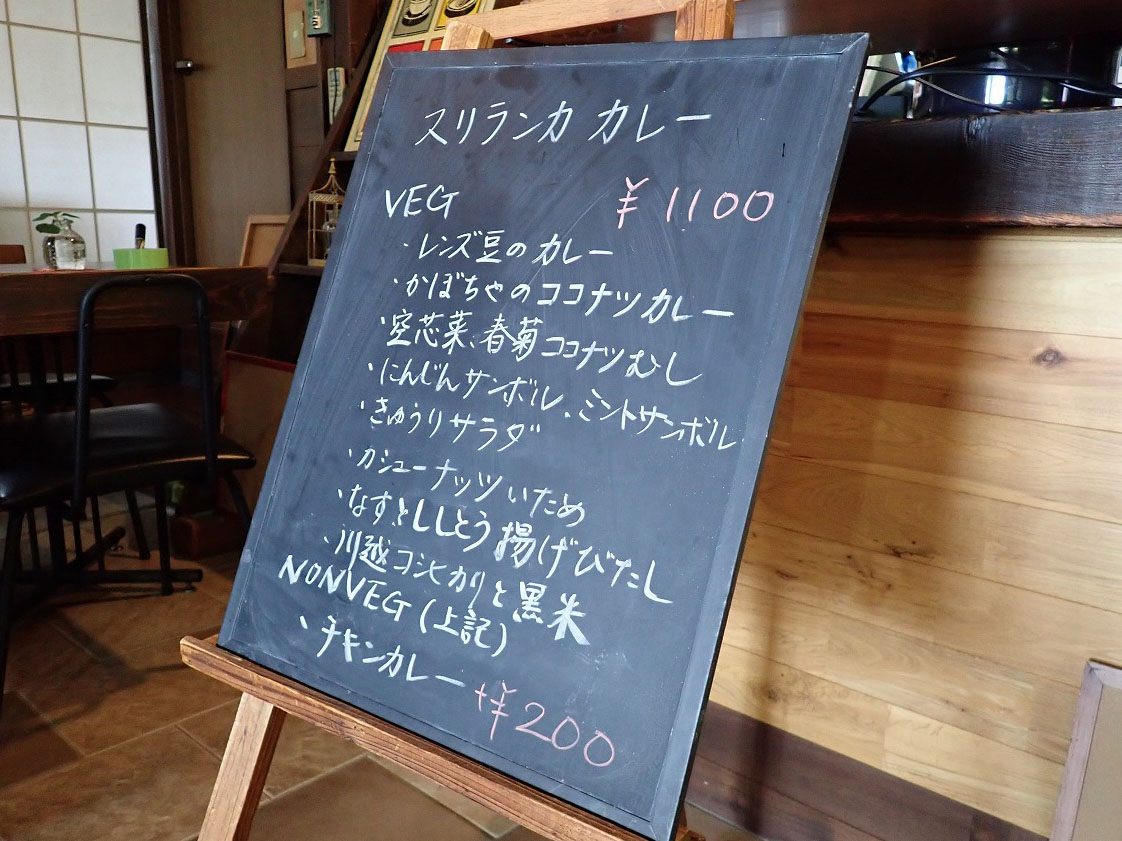 スリランカ カレー
VEG ￥1100
・レンズ豆のカレー
・かぼちゃのココナツカレー
・空芯菜、春菊ココナツむし
・にんじんサンボル、ミントサンボル
・きゅうりサラダ
・カシューナッツいため
・なすとししとう揚げびたし
・川越コシヒカリと黒米
NONVEG(上記)
、チキンカレー +￥200